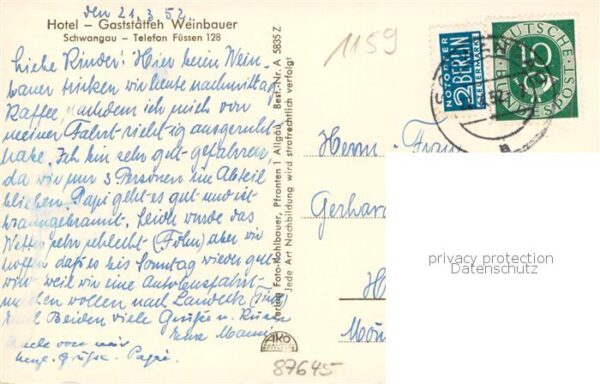 den 21.3.52
Hotel – Gaststätten Weinbauer
Schwangau – Telefon Füssen 128
Liebe Kinder! Hier beim Wein-
bauer trinken wir heute nachmittag
Kaffee, nachdem ich mich von
meiner Fahrt richtig ausgeruht
habe. Ich bin sehr gut gefahren,
da wir nur 3 Personen im Abteil
blieben. Papi geht es gut und ist
braungebrannt. Leider wurde das
Wetter sehr schlecht (Föhn) aber wir
hoffen daß es bis Sonntag wieder gut
wird weil wir eine Autobusfahrt
machen wollen nach Landeck (Tirol)
Euch Beiden viele Grüße u. Küsse
Eure Mami
Auch von mir
herzl. Grüße. Papi.
Verlag Foto-Kohlbauer, Pfronten 1 Allgäu / Best.-Nr. A 5835 Z
Jede Art Nachbildung wird strafrechtlich verfolgt
AKO
1159
NOTOPFER
2 BERLIN
STEUERMARKE
DEUTSCHE
BUNDESPOST
10
Herrn Frau
Gerhard
H
Mün
privacy protection
Datenschutz
87645